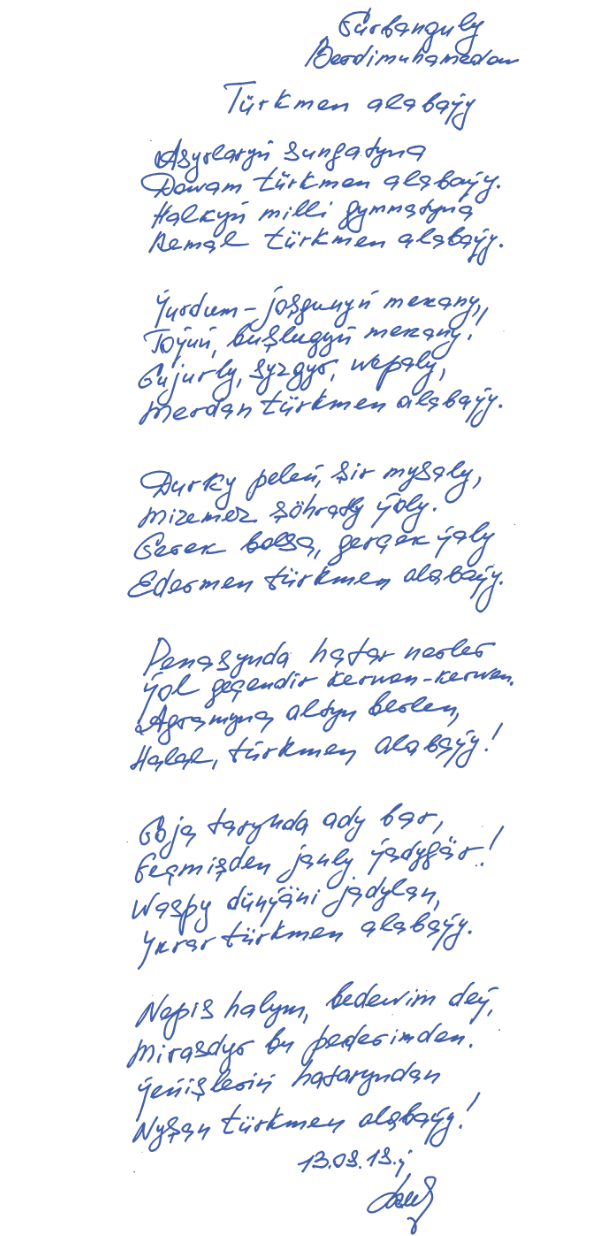 Gurbanguly
Berdimuhamedow
Türkmen alabaýy
Asyrlaryň sungatyna
Dowam türkmen alabaýy.
Halkyň milli gymmatyna
Kemal türkmen alabaýy.
Ýurdum – joşgunyň mekany,
Toýuň, buşlugyň mekany!
Gujurly, syzgyr, wepaly,
Merdan türkmen alabaýy.
Durky peleň, şir mysaly,
Mizemez şöhratly ýoly.
Gerek bolsa, gerçek ýaly
Edermen türkmen alabaýy.
Penasynda hatar nerler
Ýol geçendir kerwen-kerwen.
Agramyna altyn berlen,
Halal, türkmen alabaýy!
Goja taryhda ady bar,
Geçmişden janly ýadygär!
Waspy dünýäni jadylan,
Ykrar türkmen alabaýy.
Nepis halym, bedewim deý,
Mirasdyr bu pederimden.
Ýeňişleriň hataryndan
Nyşan türkmen alabaýy!